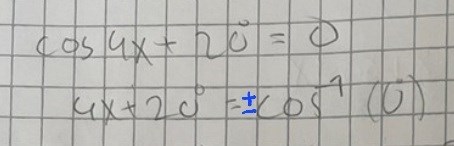 cos 4x + 20° = 0
4x + 20° = ± cos⁻¹ (0)